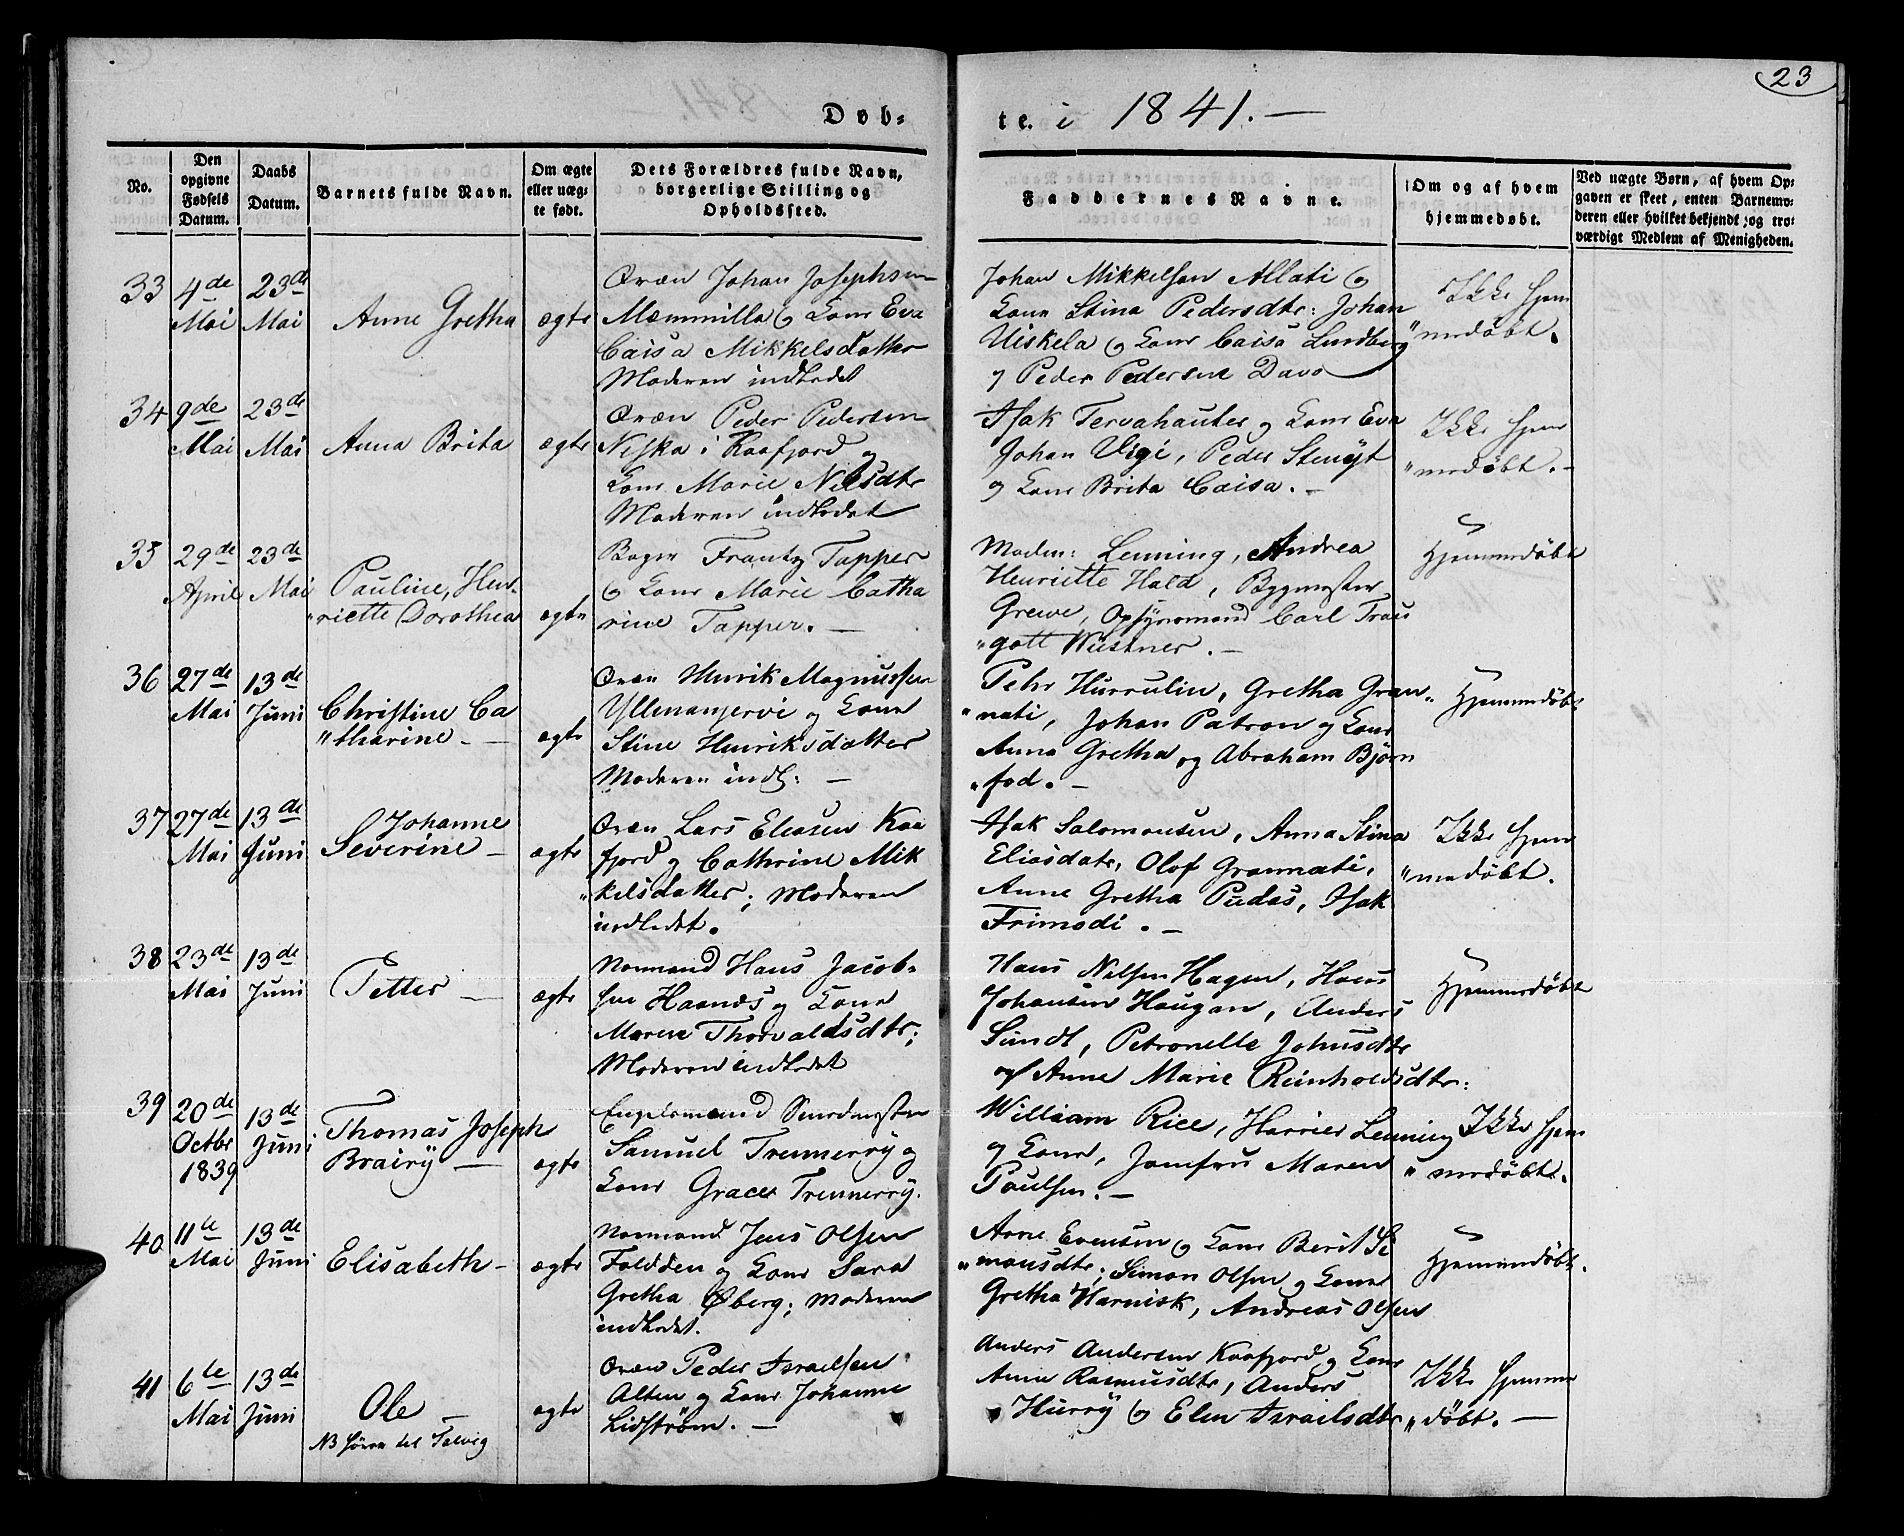 23
Døb-
te. i 1841. —
No.
Den opgivne Fødsels Datum.
Daabs Datum.
Barnets fulde Navn.
Om ægte eller uæg- te født.
Dets Forældres fulde Navn, borgerlige Stilling og Opholdssted.
Faddernes Navne.
Om og af hvem hjemmedøbt.
Ved uægte Børn, af hvem Op- gaven er skeet, enten Barnemo- deren eller hvilket bekjendt, og tro- værdigt Medlem af Menigheden.
33
4de Mai
23de Mai
Anne Gretha
ægte
Qvæn Johan Josephsen
Mæmmilla og Kone Eva
Caisa Mikkelsdatter
Moderen indledet
Johan Mikkelsen Allati og
Kone Stina Pedersdtr: Johan
Uiskela og Kone Caisa Lundberg
og Peder Pedersen Davo
Ikke hjem
"medøbt.
34
9de Mai
23de Mai
Anna Brita
ægte
Qvæn Peder Pedersen
Niska i Kaafjord og
Kone Marie Nilsdtr
Moderen indledet
Isak Tervahauter og Kone Eva
Johan Vigi, Peder Stenyt
og Kone Brita Caisa. —
Ikke hjem
"medøbt. —
35
29de April
23de Mai
Pauline, Hen-
"riette Dorothea
ægte
Bager Frantz Tapper
og Kone Marie Catha
rine Tapper. —
Madm: Lenning, Andrea
Henriette Hald, Bygmester
Grewe, Opsynsmand Carl Trau
"gott Wüstner. —
Hjemmedøbt
36
27de Mai
13de Juni
Christine Ca
"tharine —
ægte
Qvæn Henrik Magnussen
Yllenanjervi og Kone
Stine Henriksdatter
Moderen indl: —
Pehr Hurrulin, Gretha Gran-
"nati, Johan Patron og Kone
Anna Gretha og Abraham Bjørn
"fod. —
Hjemmedøbt
37
27de Mai
13de Juni
Johanne
Severine —
ægte
Qvæn Lars Eliasen Kaa
fjord og Cathrine Mik
"kelsdatter; Moderen
indledet.
Isak Salomonsen, Anna Stina
Eliasdatr, Olof Grannati,
Anne Gretha Pudas, Isak
Frimodi. —
Ikke hjem
"medøbt.
38
23de Mai
13de Juni
Petter —
ægte
Normand Hans Jacob-
sen Haanæs og Kone
Maren Thorvaldsdtr;
Moderen indledet
Hans Nilsen Hagen, Hans
Johansen Haugan, Anders
Sundt, Petronelle Johnsdtr
og Anne Marie Reinholdsdtr:
Hjemmedøbt
39
20de Octbr 1839
13de Juni
Thomas Joseph
Brairy —
ægte
Engelsmand Smedmester
Samuel Trennerry og
Kone Grace Trennerry.
William Rice, Harries Lenning
og Kone, Jomfru Maren
Paulsen. —
Ikke hjem
"medøbt.
40
11te Mai
13de Juni
Elisabeth —
ægte
Normand Jens Olsen
Foldden og Kone Sara
Gretha Øberg; Moderen
indledet.
Arne Evensen og Kone Berit Si
"monsdtr; Simon Olsen og Kone
Gretha Harnisk, Andreas Olsen
Hjemmedøbt.
41
6te Mai
13de Juni
Ole —
NB hører til Talvig
ægte
Qvæn Peder Israelsen
Alten og Kone Johanne
Lidstrøm. —
Anders Andersen Kaafjord og Kone
Anne Rasmusdtr, Anders
Hurry og Elen Israelsdtr
Ikke hjemme
"døbt. —